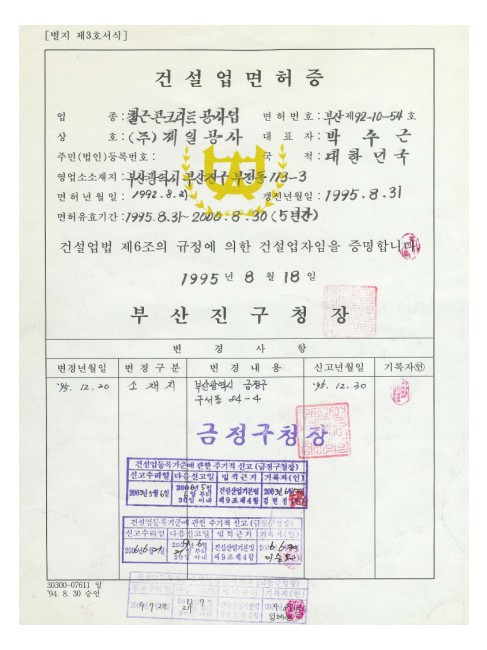 [별지 제3호서식]
건설업면허증
업 종 : 철근콘크리트공사업 면허번호 : 부산제92-10-54 호
상 호 : (주)제일공사 대 표 자 : 박 추 근
주민(법인)등록번호 : 국 적 : 대한민국
영업소소재지 : 부산광역시 부산진구 부전동 113-3
면허년월일 : 1992.8.31 갱신년월일 : 1995.8.31
면허유효기간 : 1995.8.31~2000.8.30 (5년간)
건설업법 제6조의 규정에 의한 건설업자임을 증명합니다.
1995 년 8 월 18 일
부산진구청장
변 경 사 항
변경년월일 변경구분 변경내용 신고년월일 기록자㊞
'95. 12. 20 소재지 부산광역시 금정구 '95. 12. 30
구서동 84-4
금정구청장
건설업등록기준에 관한 주기적 신고 (금정구청장)
신고수리일 다음신고일 법적근거 기록자(인)
2003년 5월 6일 2006년 5월 6일 부터 30일 이내 건설산업기본법 제9조제4항
건설업등록기준에 관한 주기적 신고 (금정구청장)
신고수리일 다음신고일 법적근거 기록자(인)
건설산업기본법 제9조제4항
30300-07611 일
'94. 8. 30 승인